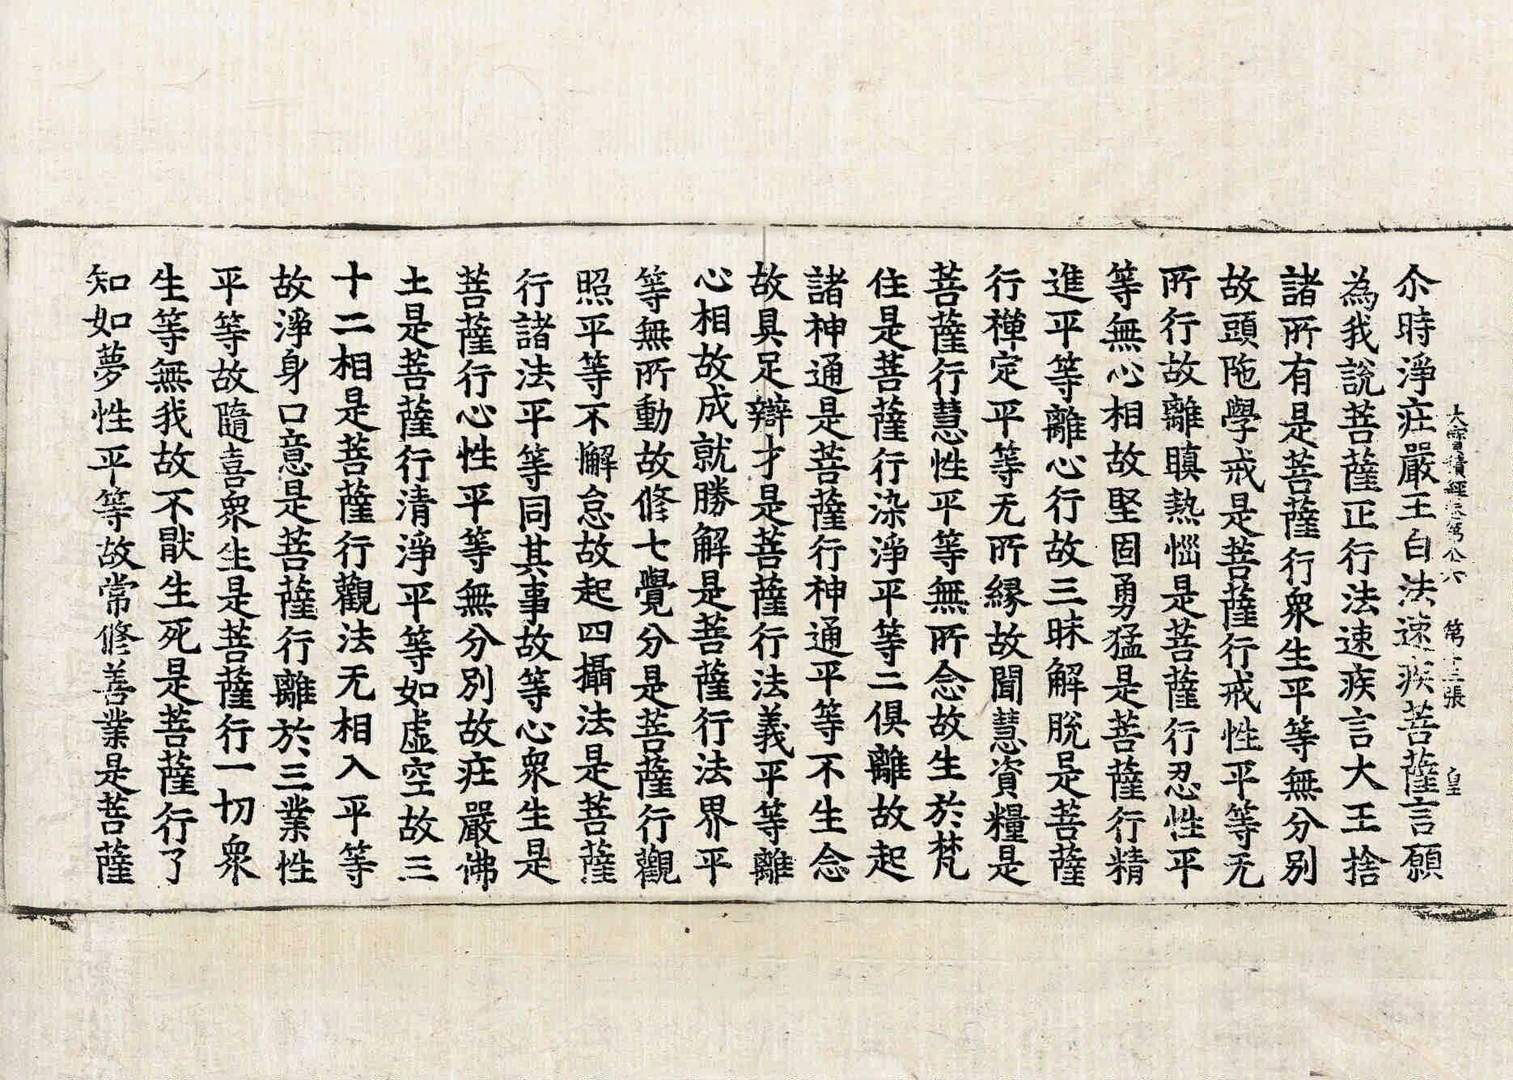 大寶積經卷第八六　第十三張　皇
尒時淨疘嚴王白法速疾菩薩言願
為我說菩薩正行法速疾言大王捨
諸所有是菩薩行衆生平等無分别
故頭陁學戒是菩薩行戒性平等无
所行故離瞋熱惱是菩薩行忍性平
等無心相故堅固勇猛是菩薩行精
進平等離心行故三昧解脫是菩薩
行禪定平等无所緣故聞慧資糧是
菩薩行慧性平等無所念故生於梵
住是菩薩行染淨平等二俱離故起
諸神通是菩薩行神通平等不生念
故具足辯才是菩薩行法義平等離
心相故成就勝解是菩薩行法界平
等無所動故修七覺分是菩薩行觀
照平等不懈怠故起四攝法是菩薩
行諸法平等同其事故等心衆生是
菩薩行心性平等無分别故疘嚴佛
土是菩薩行清淨平等如虛空故三
十二相是菩薩行觀法无相入平等
故淨身口意是菩薩行離於三業性
平等故隨喜衆生是菩薩行一切衆
生等無我故不猒生死是菩薩行了
知如夢性平等故常修善業是菩薩